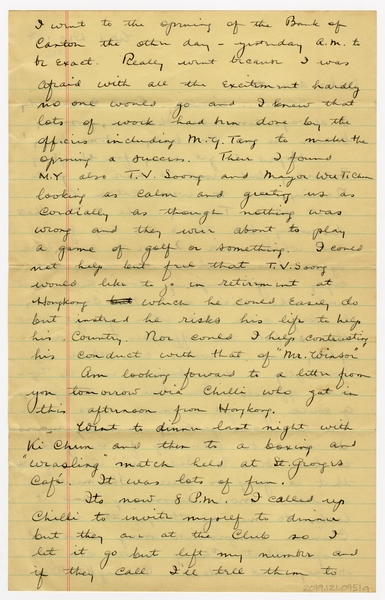 I went to the opening of the Bank of
Canton the other day – yesterday A.M. to
be exact. Really went because I was
afraid with all the excitement hardly
no one would go and I knew that
lots of work had been done by the
officers including M.Y. Tang to make the
opening a success. There I found
M.Y. also T.V. Soong and Mayor Wu Ti Chen
looking as calm and greeting us as
cordially as though nothing was
wrong and they were about to play
a game of golf or something. I could
not help but feel that T.V. Soong
would like to go in retirement at
Hongkong but which he could easily do
but instead he risks his life to help
his Country. Nor could I help contrasting
his conduct with that of "Mr. Winsor"
Am looking forward to a letter from
you tomorrow via Chilli who got in
this afternoon from Hongkong.
Went to dinner last night with
Ki Chun and then to a boxing and
"wrasling" match held at St. Georges
Café. It was lots of fun.
Its now 8 P.M. I called up
Chilli to invite myself to dinner
but they are at the Club so I
let it go but left my number and
if they call I'll tell them to
2019.121.095.1a